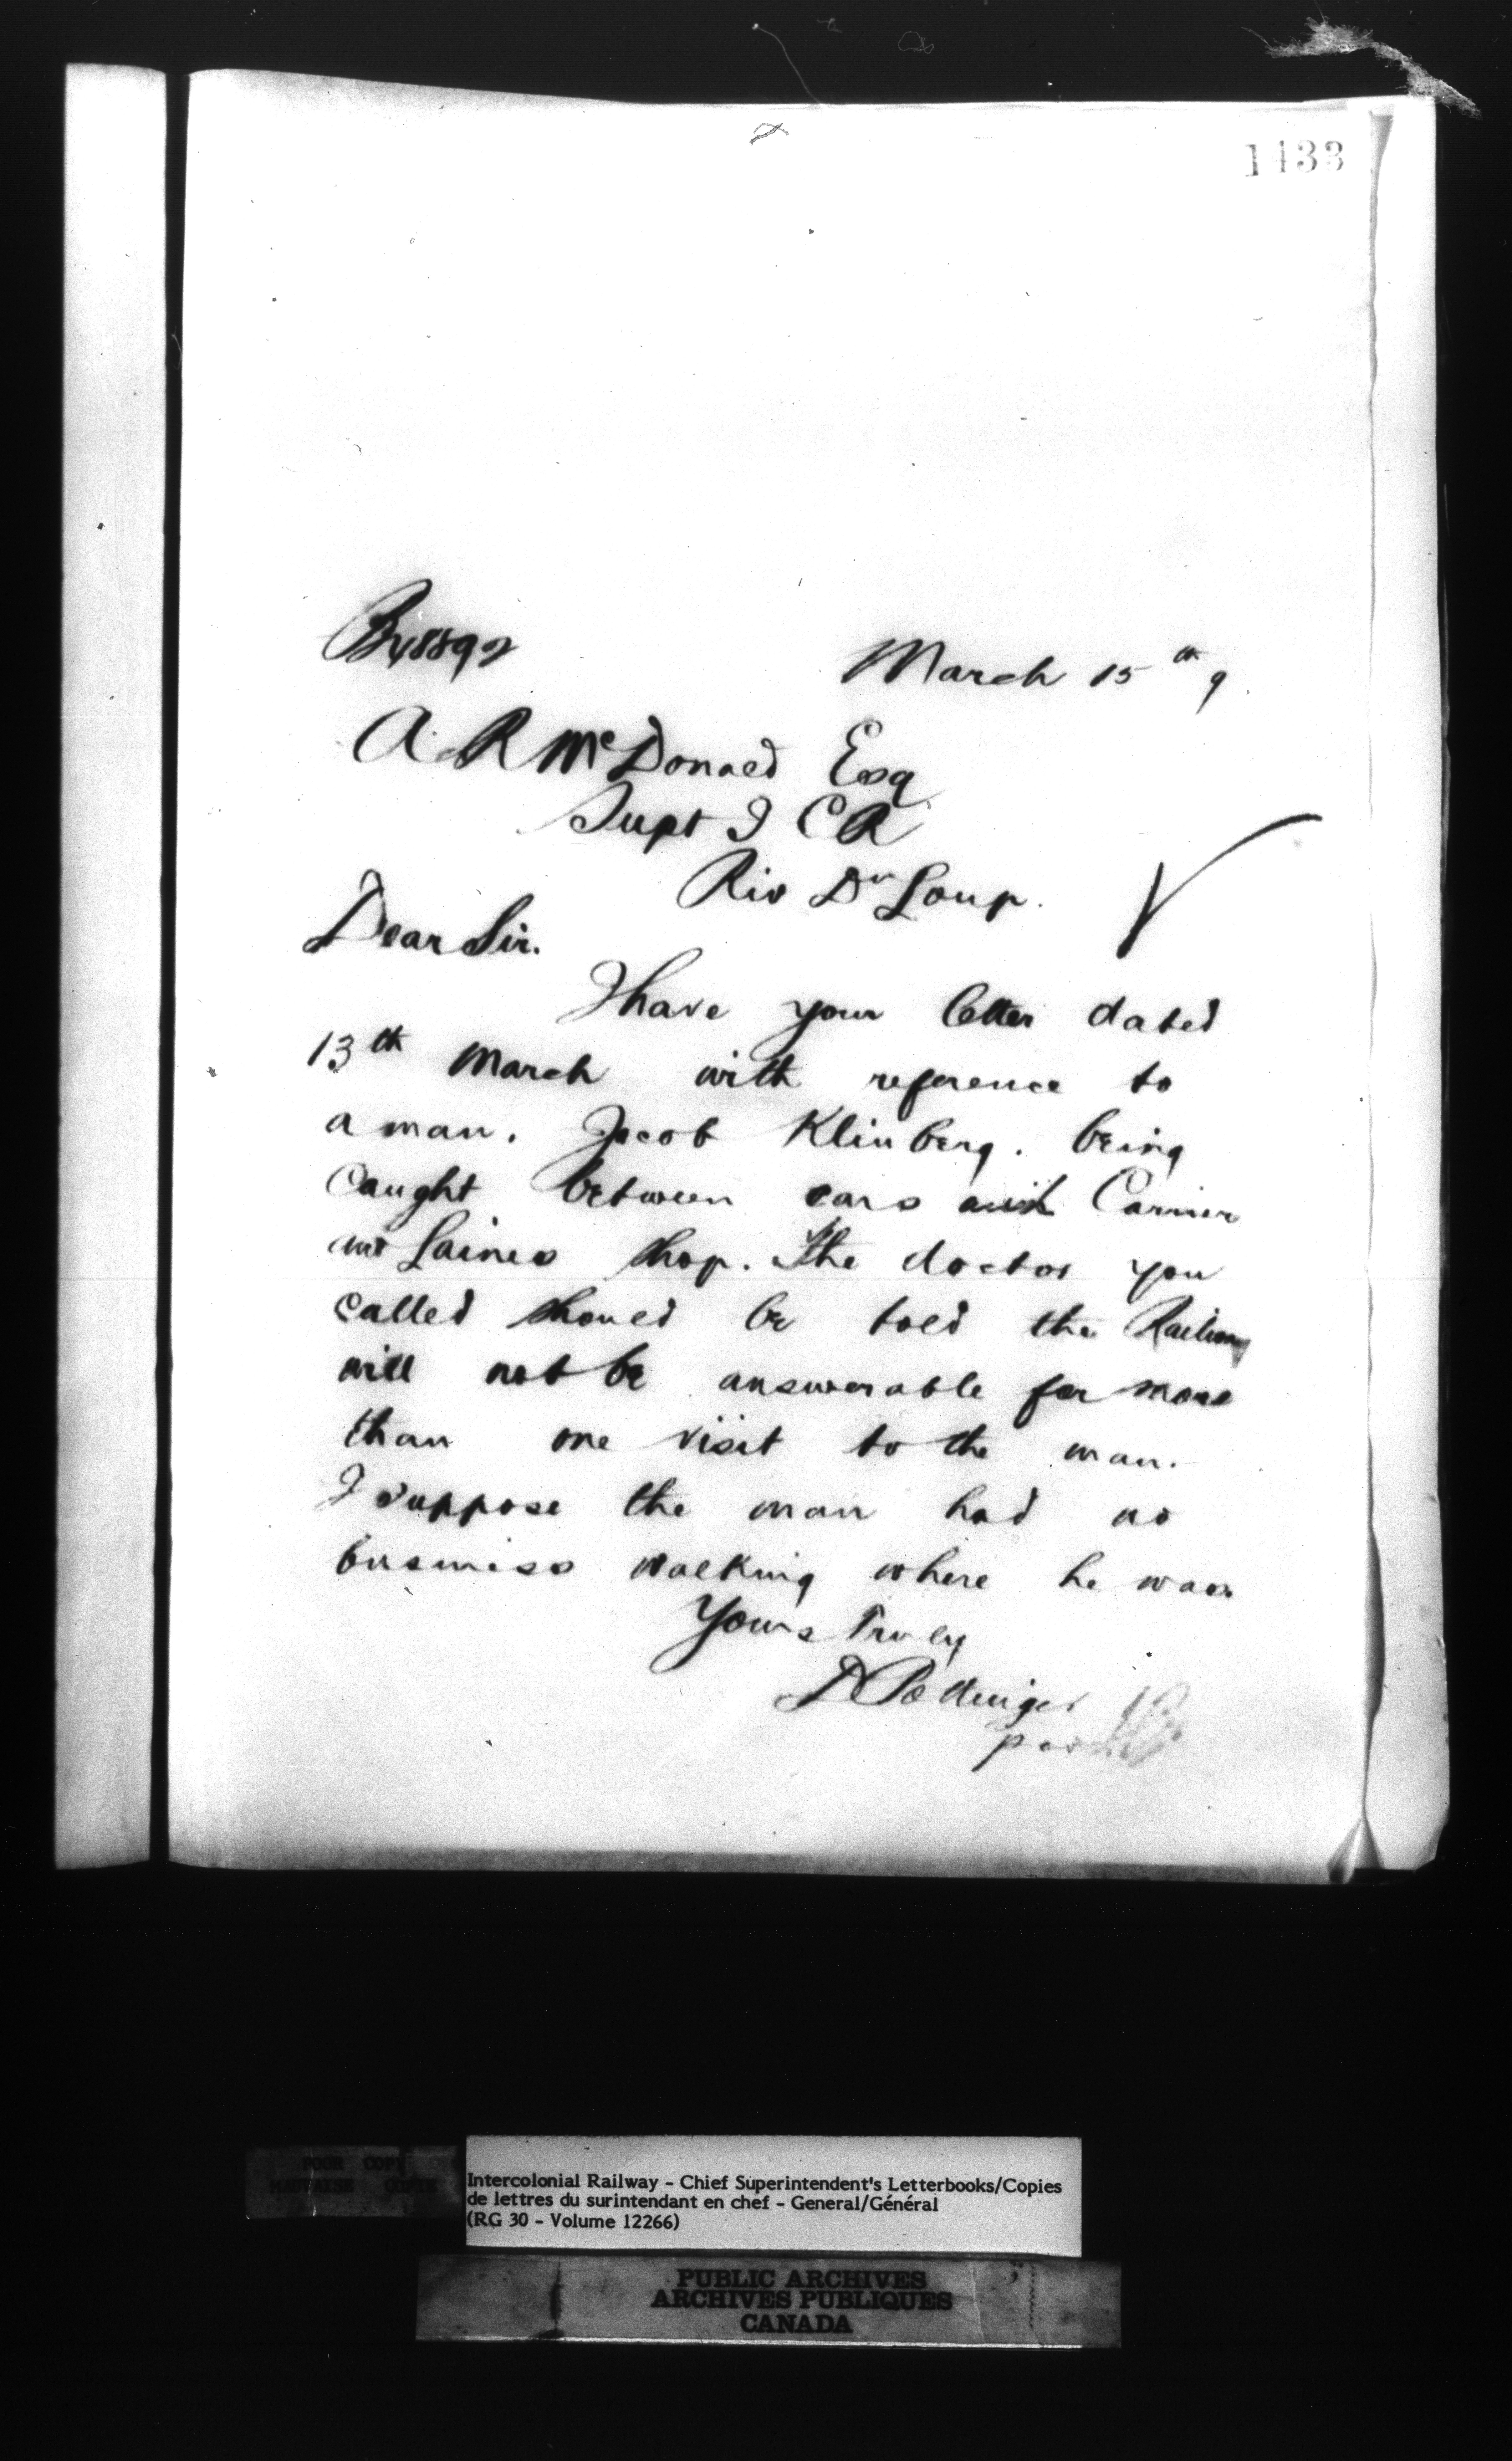 1433
March 15th 9
A. R McDonald Esq
Supt I C R
Riv Du Loup.
Dear Sir.
I have your letter dated
13th March with reference to
a man. Jacob Klinberg. being
caught between cars Carrier
and Laines shop. The doctor you
called should be told the Railway
will not be answerable for more
than one visit to the man.
I suppose the man had no
business walking where he was.
Yours Truly
D Pottinger
per
POOR COPY
MAUVAISE COPIE
Intercolonial Railway - Chief Superintendent's Letterbooks/Copies
de lettres du surintendant en chef - General/Général
(RG 30 - Volume 12266)
PUBLIC ARCHIVES
ARCHIVES PUBLIQUES
CANADA